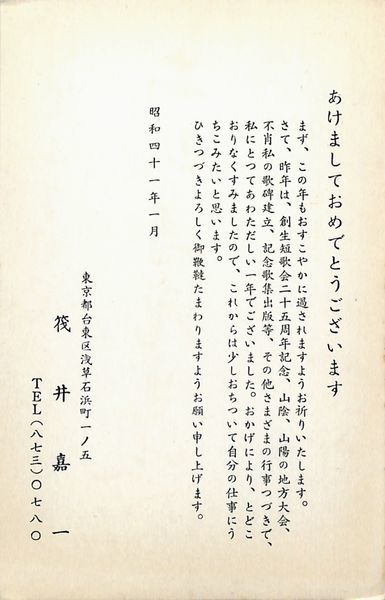 あけましておめでとうございます
まず、この年もおすこやかに過されますようお祈りいたします。
さて、昨年は、創生短歌会二十五周年記念、山陰、山陽の地方大会、
不肖私の歌碑建立、記念歌集出版等、その他さまざまの行事つづきで、
私にとつてあわただしい一年でございました。おかげにより、とどこ
おりなくすみましたので、これからは少しおちついて自分の仕事にう
ちこみたいと思います。
ひきつづきよろしく御鞭韃たまわりますようお願い申し上げます。
昭和四十一年一月
東京都台東区浅草石浜町一ノ五
筏井嘉一
TEL(八七三)〇七八〇